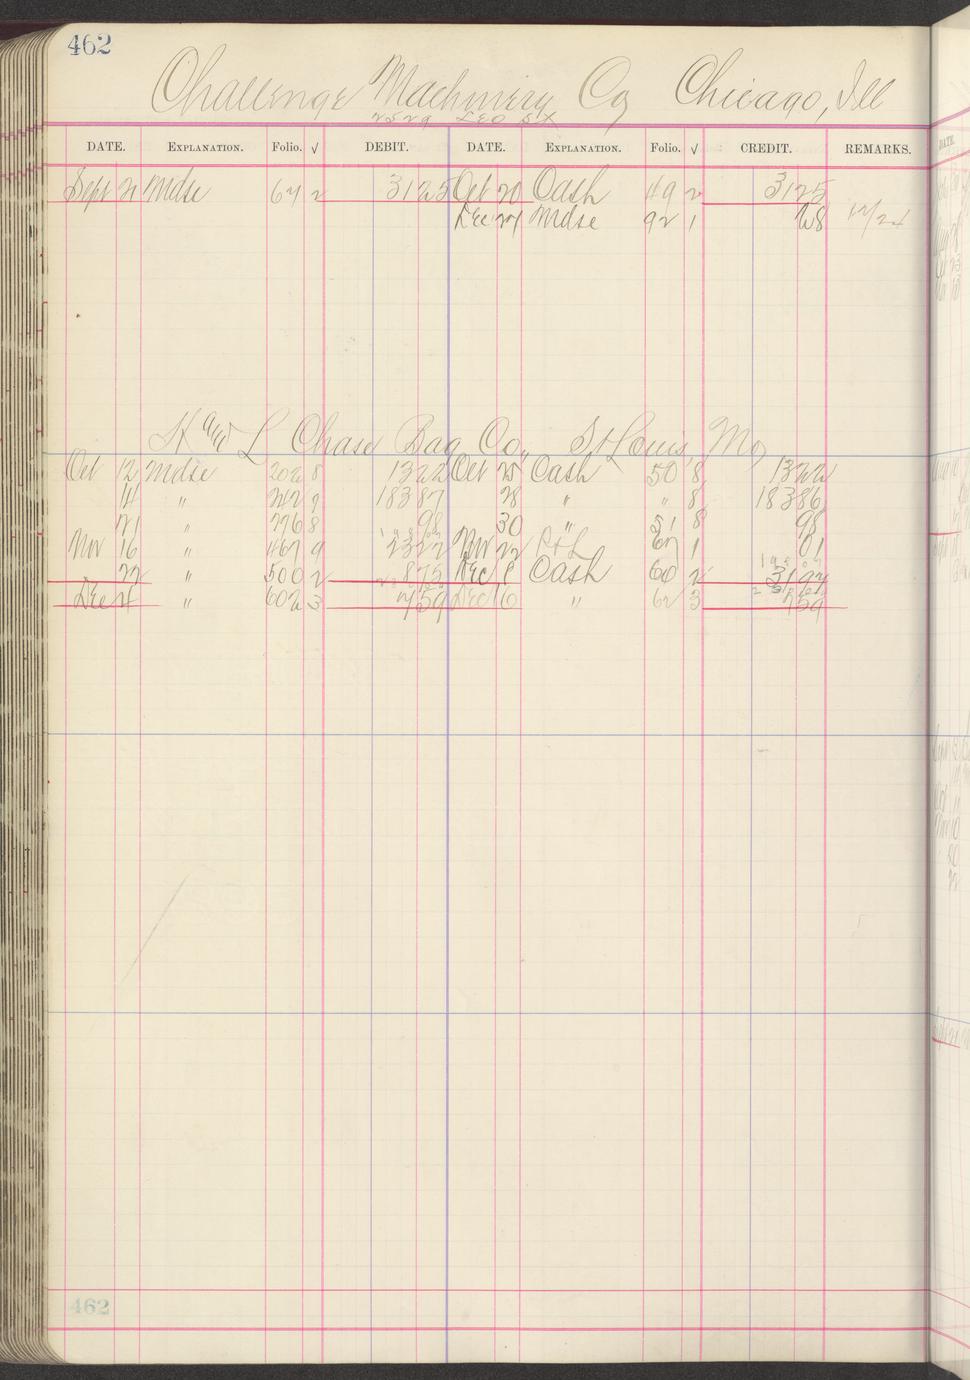 462
Challenge Machinery Co Chicago, Ill
2529 Leo St
DATE. EXPLANATION. Folio. √ DEBIT. DATE. EXPLANATION. Folio. √ CREDIT. REMARKS.
Sept 21 Mdse 67 2 3125 Oct 20 Cash 49 2 3125
Dec 27 Mdse 92 1 12/24
H and L Chase Bag Co., St Louis, Mo
Oct 12 Mdse 202 8 1322 Oct 25 Cash 50 8 1322
14 " 242 9 18387 28 " " 8 18386
21 " 276 8 98 30 " 51 8 98
Nov 16 " 467 9 2322 Nov 22 P&L 67 1 01
22 " 500 2 875 Dec 1 Cash 60 2 3197
Dec 4 " 602 3 759 Dec 16 " 62 3 759
462